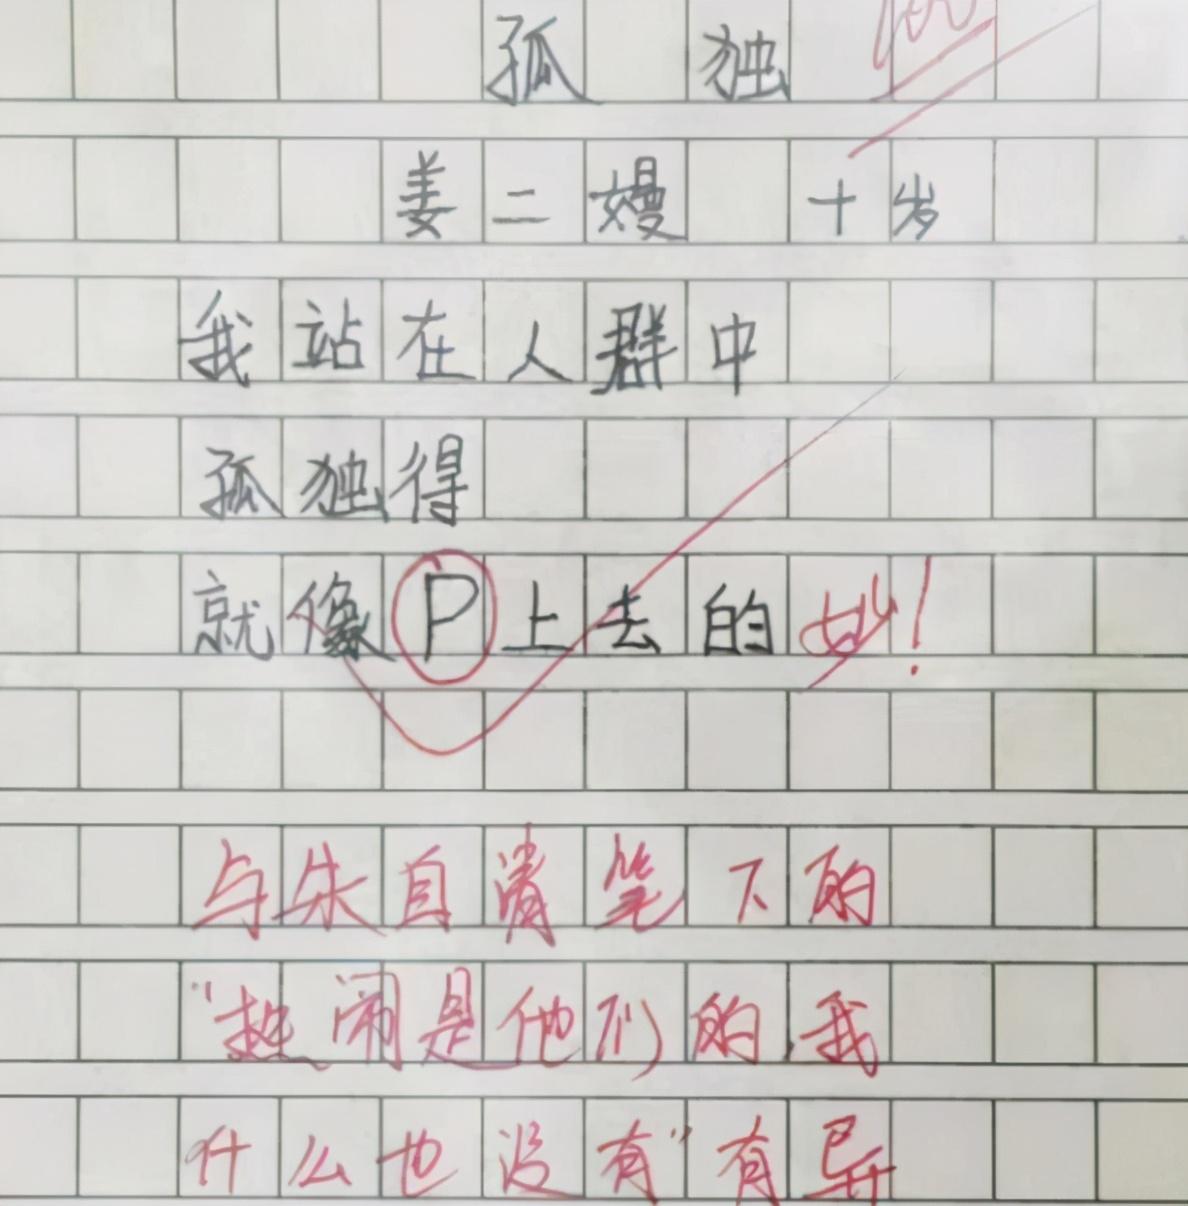 孤独
姜二嫚 十岁
我站在人群中
孤独得
就像P上去的 妙！
与朱自清笔下的
“热闹是他们的,我
什么也没有”有异